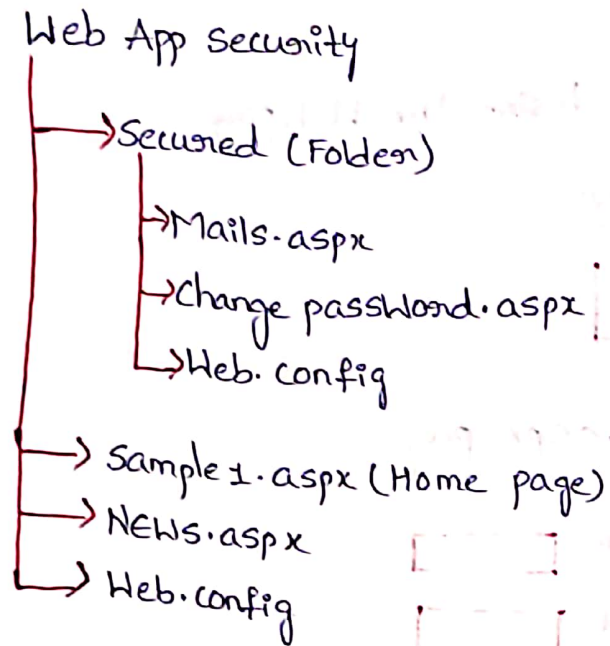 Web App Security
Secured (Folder)
Mails.aspx
Change password.aspx
Web.config
Sample1.aspx (Home page)
NEWS.aspx
Web.config